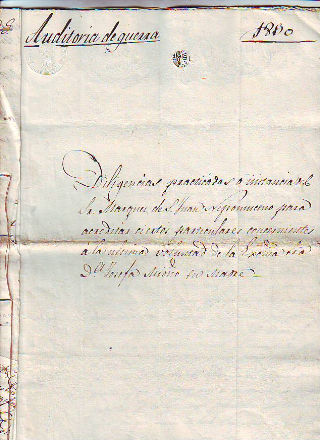 Auditoria de guerra
1810
Diligencias practicadas a instancia del
Sr. Marques de S. Juan Nepomuceno para
acreditar ciertos particulares concernientes
a la ultima voluntad de la
Dª Josefa su Madre